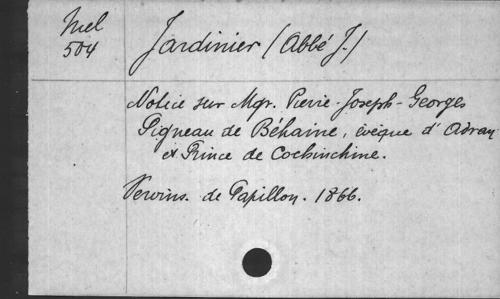 Mel
504
Jardinier (Abbé J.)
Notice sur Mgr. Pierre-Joseph-Georges
Pigneau de Béhaine, évêque d'Adran
et Prince de Cochinchine.
Vervins. de Papillon. 1866.